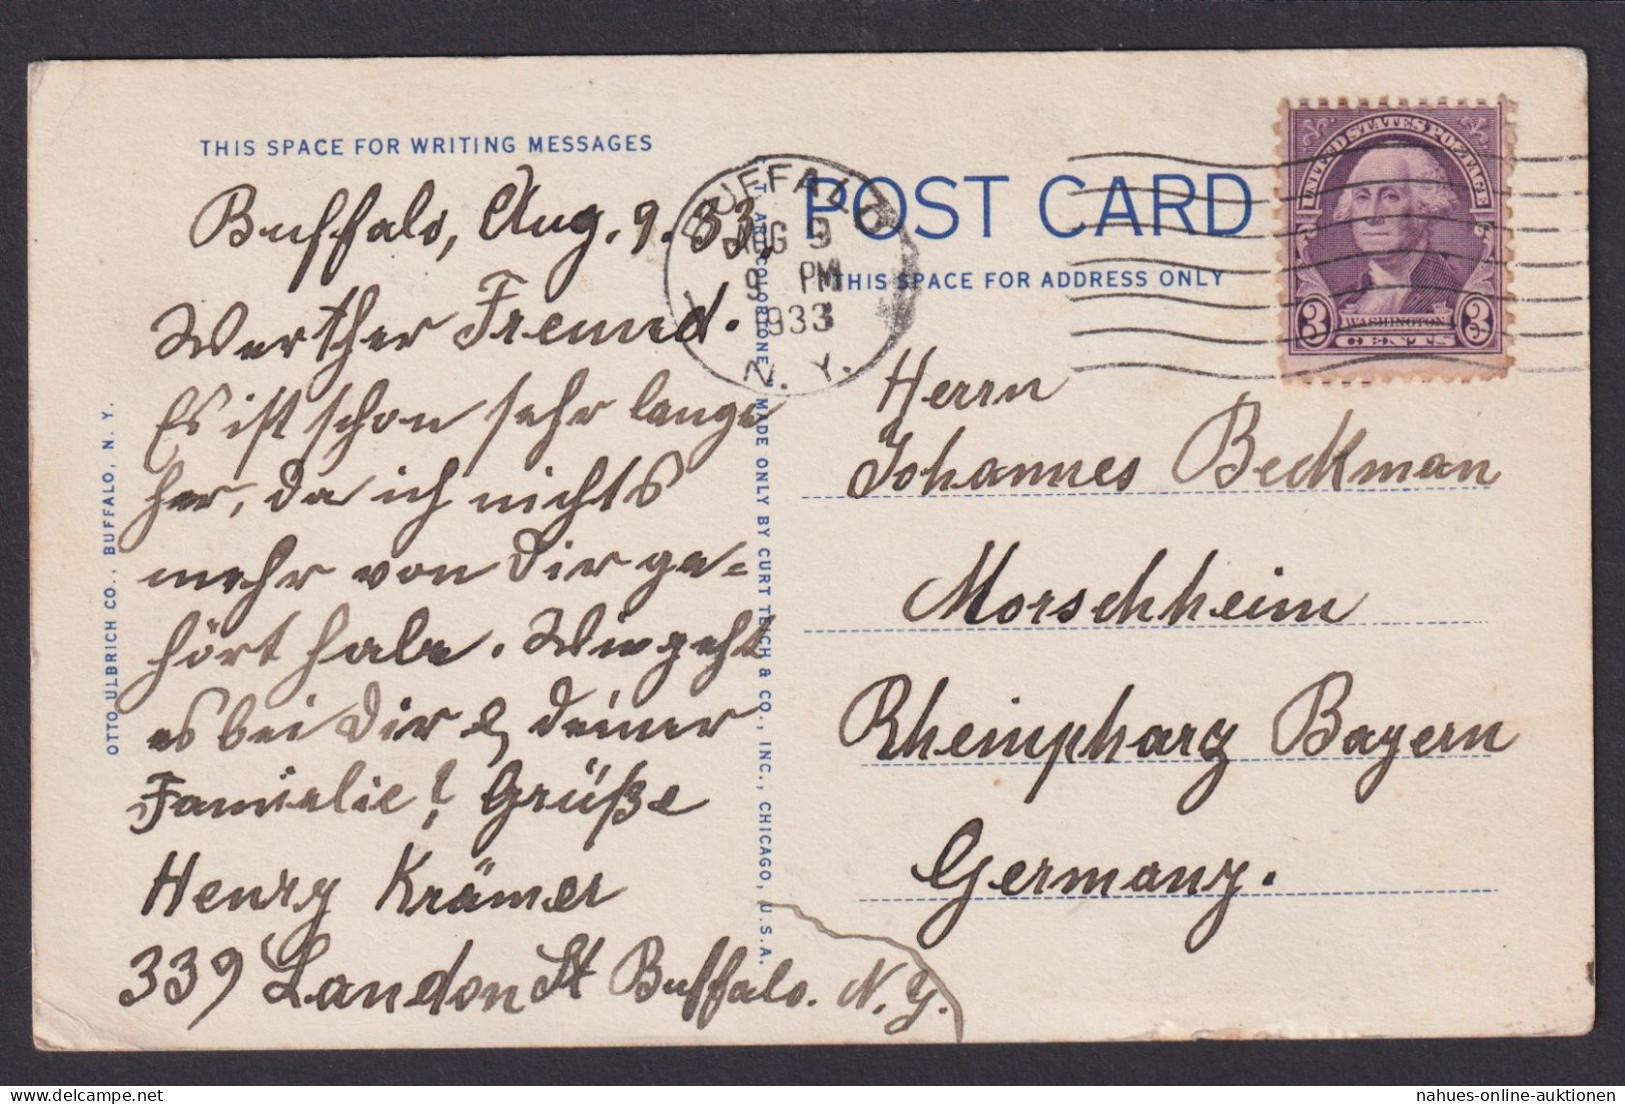 THIS SPACE FOR WRITING MESSAGES
Buffalo, Aug. 9. 33.
Werther Freund.
Es ist schon sehr lange
her, da ich nichts
mehr von Dir ge=
hört habe. Wie geht
es bei Dir & deiner
Familie? Grüße
Henry Krämer
339 Landon St Buffalo. N.Y.
OTTO ULBRICH CO., BUFFALO, N. Y.
BUFFALO
AUG 9
9 PM
1933
N. Y.
"C. T. ART-COLORTONE" MADE ONLY BY CURT TEICH & CO., INC., CHICAGO, U.S.A.
POST CARD
THIS SPACE FOR ADDRESS ONLY
UNITED STATES POSTAGE
3 WASHINGTON 3
CENTS
Herrn
Johannes Beckman
Morschheim
Rheinpharz Bayern
Germany.
nahues-online-auktionen